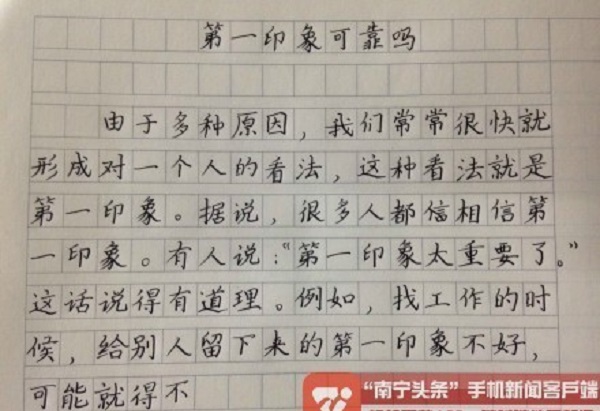 第一印象可靠吗
由于多种原因，我们常常很快就
形成对一个人的看法，这种看法就是
第一印象。据说，很多人都信相信第
一印象。有人说：“第一印象太重要了。”
这话说得有道理。例如，找工作的时
候，给别人留下来的第一印象不好，
可能就得不
“南宁头条”手机新闻客户端